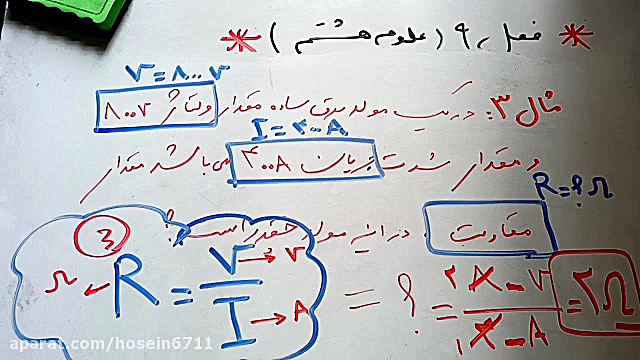 * فصل ۹ ( علوم هشتم ) *
V = ۸۰۰ V
مثال ۳: در یک مولد برق ساده مقدار ولتاژ ۸۰۰ V
I = ۴۰۰ A
و مقدار شدت جریان ۴۰۰ A می باشد مقدار
R = ؟ Ω
مقاومت در این مولد چقدر است ؟
3
Ω R = V/I → V → A = ؟ = = ۲Ω
aparat.com/hosein6711